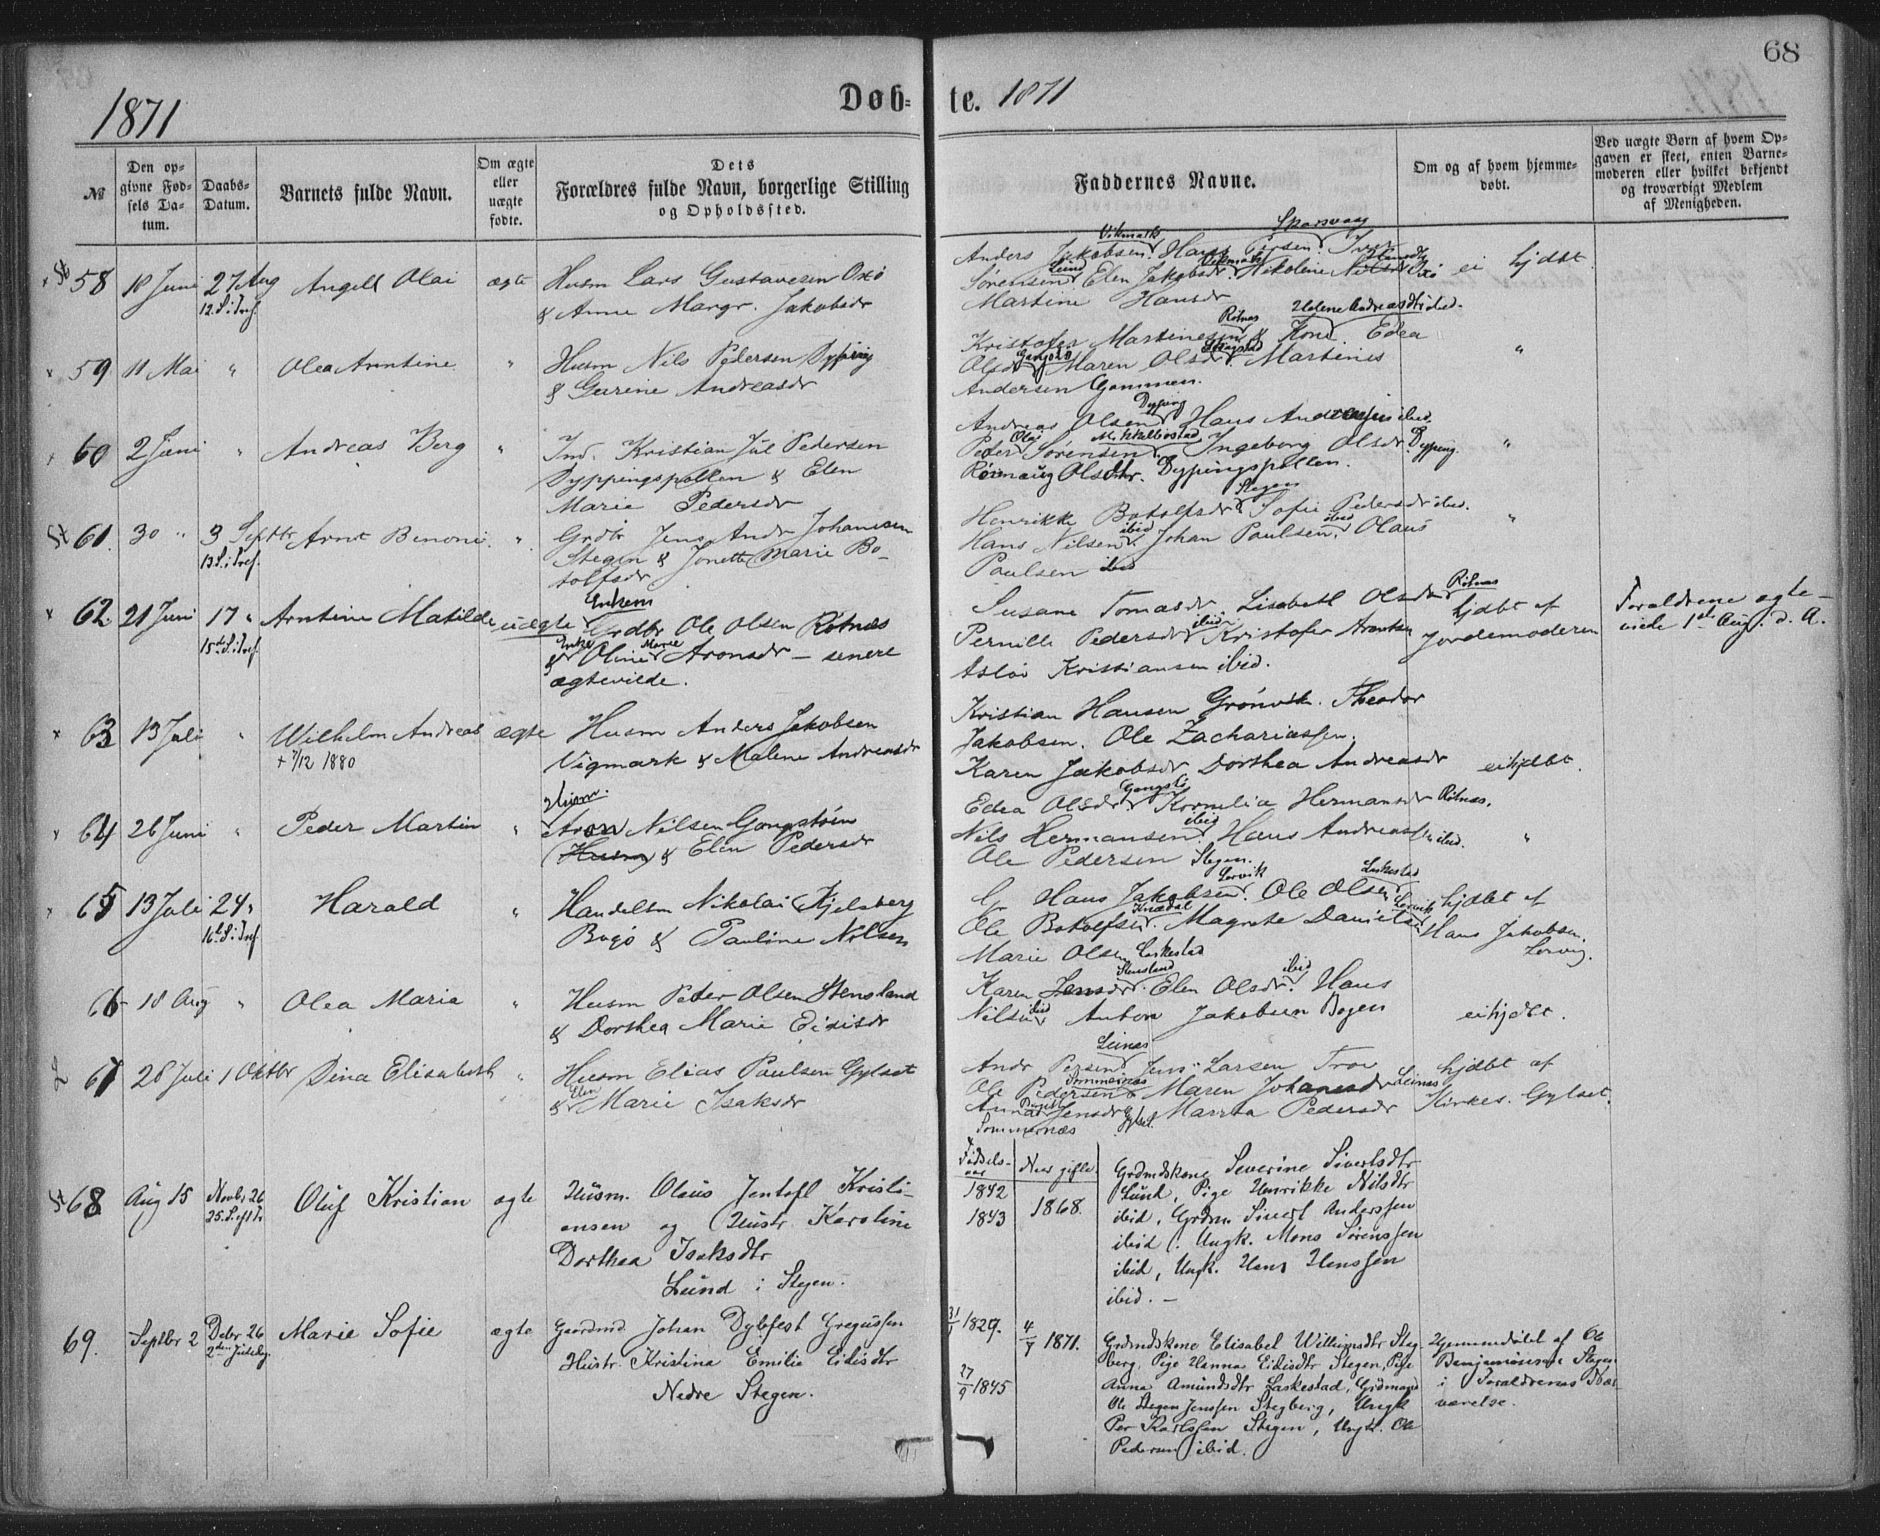 68
1871
Døb-
te. 1871
№
Den op-
givne Fød-
sels Da-
tum.
Daabs-
Datum.
Barnets fulde Navn.
Om ægte
eller
uægte
fødte.
Dets
Forældres fulde Navn, borgerlige Stilling
og Opholdssted.
Faddernes Navne.
Om og af hvem hjemme-
døbt.
Ved uægte Børn af hvem Op-
gaven er skeet, enten Barne-
moderen eller hvilket bekjendt
og troværdigt Medlem
af Menigheden.
58 18 Juni 27 Aug
12. S. i Tref.
Angell Olai ægte
Husm Lars Gustavesen Oxö
& Anne Margr. Jakobsdr
Vikmark Sparvaag
Anders Jakobsen Hans Persen Iver
Sørensen Lund Elen Jakobsdr Vikmark Nikoline Nilsdr Oxö
Martine Hansdr
ei hjdbt
59 11 Mai " Olea Arntine "
Husm Nils Pedersen Dypping
& Gurine Andreasdr
Rötnæs Helene Andreasdtr ibid.
Kristofer Martinesen & Kone. Edea
Olsdr Maren Olsdr Martines
Andersen Gammen.
"
60 2 Juni " Andreas Berg "
Ind. Kristian Jul Pedersen
Dyppingspollen & Elen
Marie Pedersdr
Andreas Olsen Hans Andreassen ibid.
Peder Olai Sörensen Mikkelbostad Ingeborg Olsdr Dypping.
Rönnaug Olsdtr. Dypingspollen.
"
61. 30 " 3 Septbr
13 S. i Tref.
Arnt Benoni. "
Grdbr Jens Andr Johansen
Stegen & Jonette Marie Bo-
tolfsdr
Stegen
Henrikke Botolfsdr Sofie Pedersdr ibid.
Hans Nilsen ibid Johan Paulsen ibid Olaus
Paulsen ibid
"
62. 21 Juni 17 "
15de S. i Tref.
Arntine Matilde uægte
Enkem
Grdbr Ole Olsen Rötnæs
& Enke Oline Marie Aronsdr — senere
ægteviede.
Susane Tomasdr. Lisabetl Olsdr Rötnæs
Pernille Pedersdr ibid Kristofer Arentsen
Aslöi Kristiansen ibid.
hjdbt af
Jordemoderen
Foraldrene ægte-
viede 1st Aug. d. A.
63 13 Juli " Wilhelm Andreas ægte
+ 7/12 1880
Husm Anders Jakobsen
Vigmark & Malene Andreasdr
Kristian Hansen Grönvik. Theodor
Jakobsen. Ole Zachariassen.
Karen Jakobsdr Dorthea Andreasdr
ei hjdbt.
64 26 Juni " Peder Martin "
Husm.
Aron Nilsen Gangstöin
(Husm) & Elen Pedersdr
Edea Olsdr Kornelia Hermansdr Rötnæs.
Nils Hermansen ibid Hans Andreassen ibid.
Ole Pedersen Stegen.
"
65 13 Juli 24 "
16de S. i Tref.
Harald "
Handelsm Nikolai Kjelsberg
Bogö & Pauline Nilsen
Lervik Laskestad
Hans Jakobsen. Ole Olsen
Ole Botolfsen Magrete Danielsen Lervik
Marie Olsen Laskestad
hjdbt af
Hans Jakobsen.
Lervig.
66 18 Aug " Olea Maria "
Husm Peder Olsen Stensland
& Dorthea Marie Eidisdr
Stensland
Karen Jensdr. Elen Olsdr ibid. Hans
Nilsen ibid Anton Jakobsen Bogen
ei hjdbt.
67 26 Juli 1 Oktbr Dina Elisabeth "
Husm Elias Paulsen Gylset
& Elen Marie Isaksdr
Leinæs
Andr Persen Jens Larsen Troe
Ole Pedersen Sommernæs Maren Johansdr Leinæs
Anna Jensdr Gylset Martha Pedersdr
Sommernæs
hjdbt af
Kirkes. Gylset.
Födsels-
aar
Naar gifte.
68 Aug 15 Novbr 26
25. S. eft Tr
Oluf Kristian ægte
Husm. Olaus Jentoft Kristi-
ansen og Hustr. Karoline
Dorthea Isaksdtr
Lund i Stegen.
1842
1843
1868.
Grdmdskone Severine Sivertsdtr
Lund, Pige Henrikke Nilsdtr
ibid, Grdm. Sivert Anderssen
ibid, Ungk. Mons Sörenssen
ibid, Ungk. Hans Henssen
ibid. —
69. Septbr 2 Debr 26
2den Juledg.
Marie Sofie ægte
Gaardmd Johan Dybfest Gregussen
Hustr. Kristina Emilie Eidisdtr
Nedre Stegen.
1829.
27/9 1845
4/7 1871.
Grdmdskone Elisabet Willumsdtr Steg-
berg, Pige Hanna Eidisdtr Stegen, Pige
Anna Amundsdtr Laskestad, Grdmand
Ole Stegen Jenssen Stegberg, Ungk
Per Karlssen Stegen, Ungk. Ole
Pedersen ibid.
Hjemmedöbt af Ole
Benjaminsen Stegen
i Foraldrenes Nær-
værelse.